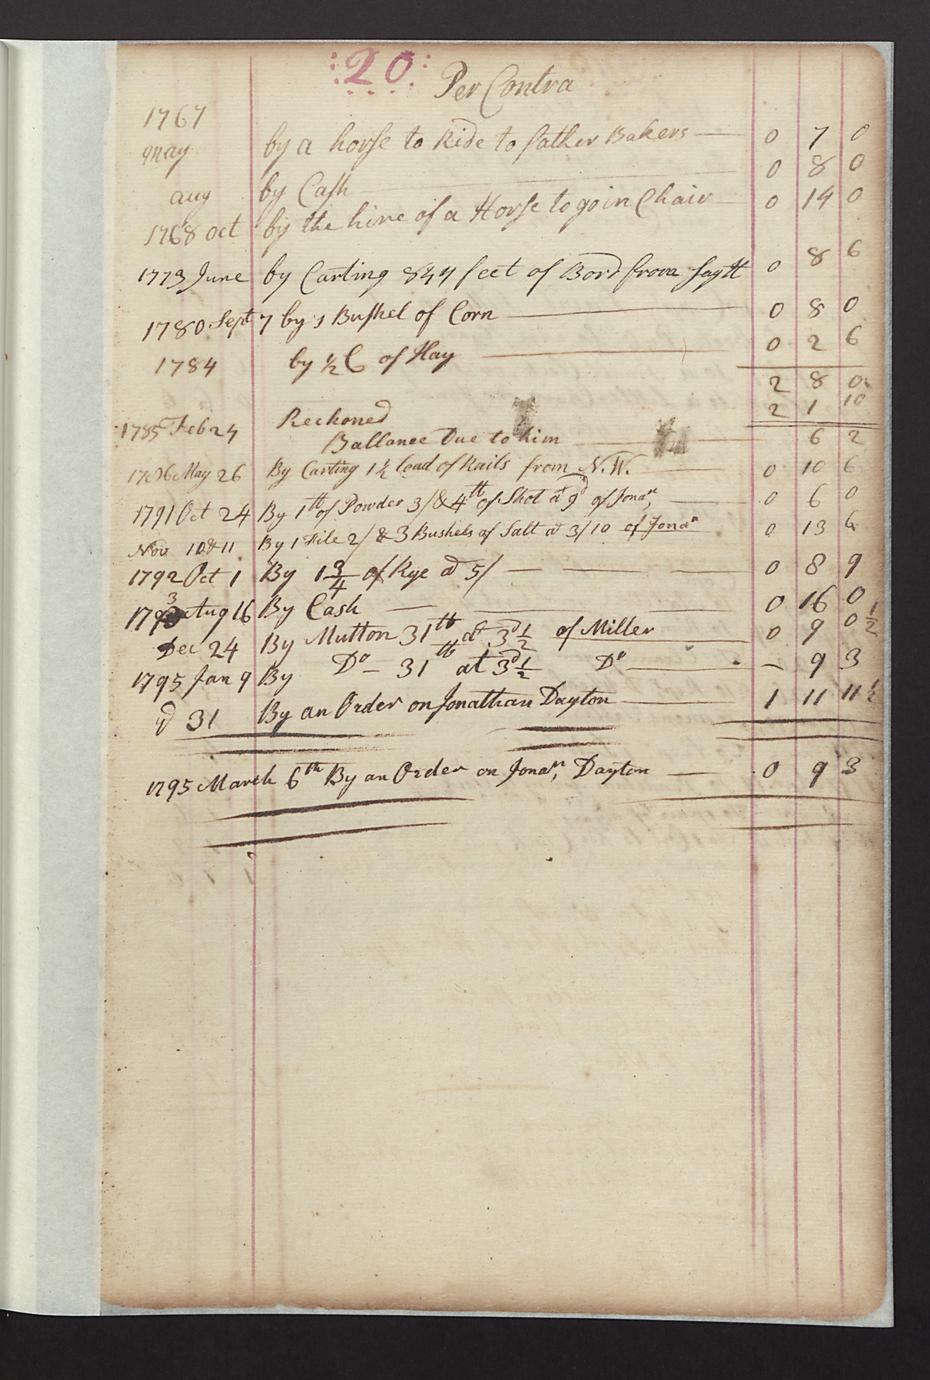 20
Per Contra
1767
may by a horse to Ride to father Bakers 0 7 0
aug by Cash 0 8 0
1768 oct by the hire of a Horse to go in Chair 0 14 0
1773 June by Carting 844 feet of Bord from 0 8 6
1780 Sept 7 by 1 Bushel of Corn 0 8 0
1784 by ½ C of Hay 0 2 6
2 8 0
1785 Feb 24 Reckoned 2 1 10
Ballance Due to him 6 2
1786 May 26 By Carting 1½ load of Rails from N.W. 0 10 6
1791 Oct 24 By 1 lb of Powder 3/ & 4 lb of Shot at 9d of Jonan 0 6 0
Nov 10 & 11 By 1 File 2/ & 3 Bushels of Salt at 3/10 of Jonan 0 13 6
1792 Oct 1 By 1¾ of Rye at 5/ 0 8 9
1793 Aug 16 By Cash 0 16 0
Dec 24 By Mutton 31 lb at 3d½ of Miller 0 9 0½
1795 Jan 9 By Do 31 lb at 3d½ Do 9 3
31 By an Order on Jonathan Dayton 1 11 11½
1795 March 6th By an Order on Jonan, Dayton 0 9 3